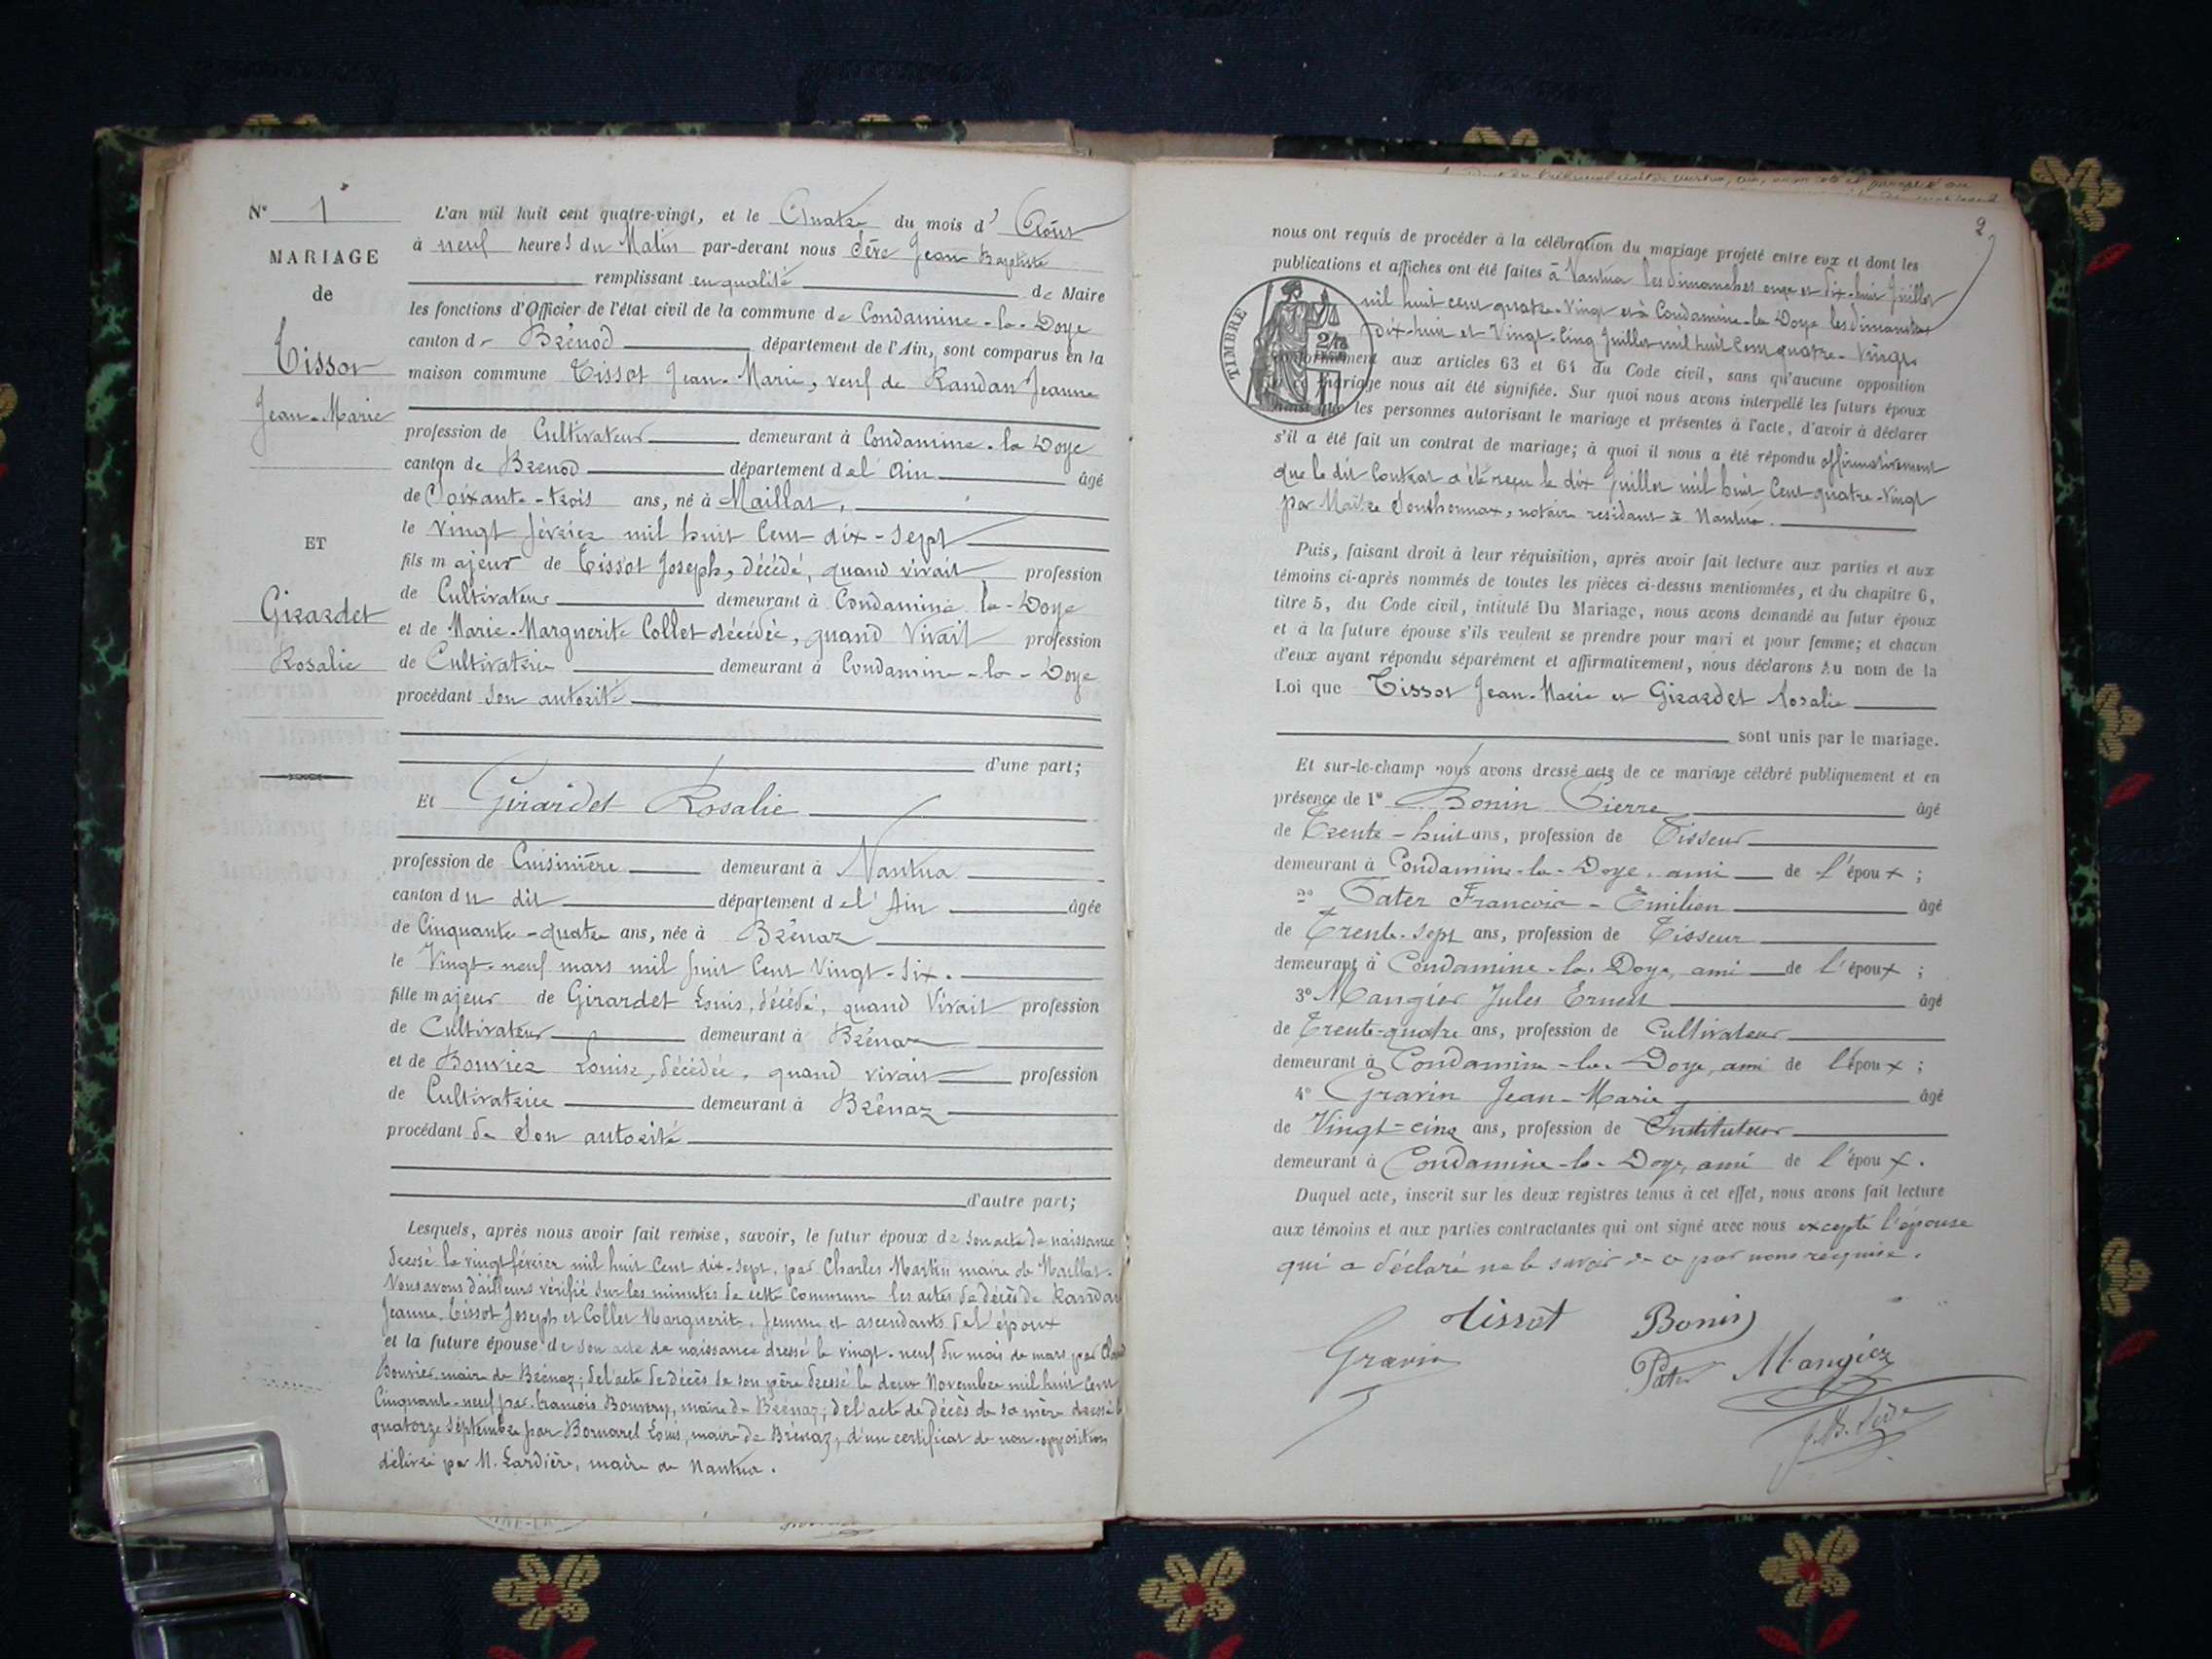 N° 1
MARIAGE
de
Tissot
Jean-Marie
ET
Girardet
Rosalie
L'an mil huit cent quatre-vingt, et le Quatre du mois d' Août
à neuf heures du Matin par-devant nous Sève Jean Baptiste
remplissant en qualité de Maire
les fonctions d'Officier de l'état civil de la commune de Condamine-la-Doye
canton de Brénod département de l'Ain, sont comparus en la
maison commune Tissot Jean-Marie, veuf de Randan Jeanne
profession de Cultivateur demeurant à Condamine-la Doye
canton de Brenod département de l'Ain âgé
de Soixante-trois ans, né à Maillat,
le vingt février mil huit Cent dix-sept
fils majeur de Tissot Joseph, décédé, quand vivait profession
de Cultivateur demeurant à Condamine la-Doye
et de Marie-Marguerite Collet décédée, quand Vivait profession
de Cultivatrice demeurant à Condamine-la-Doye
procédant son autorité
d'une part;
Et Girardet Rosalie
profession de Cuisinière demeurant à Nantua
canton du dit département de l'Ain âgée
de Cinquante-quatre ans, née à Brénaz
le Vingt-neuf mars mil huit Cent Vingt-Six.
fille majeur de Girardet Louis, décédé, quand Vivait profession
de Cultivateur demeurant à Brénaz
et de Bouvier Louise, décédée, quand vivait profession
de Cultivatrice demeurant à Brénaz
procédant de Son autorité
d'autre part;
Lesquels, après nous avoir fait remise, savoir, le futur époux de Son acte de naissance
dressé le vingt février mil huit Cent dix-sept, par Charles Martin maire de Maillat.
Nous avons d'ailleurs vérifié sur les minutes de cette Commune les actes de décès de Randan
Jeanne, Tissot Joseph et Collet Marguerite, femme et ascendants de l'époux
et la future épouse de Son acte de naissance dressé le vingt-neuf du mois de mars par
Bouvier, maire de Brénaz; de l'acte de décès de son père dressé le deux Novembre mil huit Cent
Cinquante-neuf par François Bouvery, maire de Brénaz; de l'acte de décès de sa mère dressé le
quatorze Septembre par Bornarel Louis, maire de Brénaz, d'un certificat de non-opposition
délivré par M. Lardière, maire de Nantua.
2
nous ont requis de procéder à la célébration du mariage projeté entre eux et dont les
publications et affiches ont été faites à Nantua les dimanches onze et dix-huit Juillet
mil huit cent quatre-vingt et à Condamine-la Doye les dimanches
Dix-huit et Vingt-Cinq Juillet mil huit Cent quatre-Vingt
TIMBRE
conformément aux articles 63 et 64 du Code civil, sans qu'aucune opposition
à ce mariage nous ait été signifiée. Sur quoi nous avons interpellé les futurs époux
ainsi que les personnes autorisant le mariage et présentes à l'acte, d'avoir à déclarer
s'il a été fait un contrat de mariage; à quoi il nous a été répondu affirmativement
que le dit Contrat a été reçu le dix Juillet mil huit Cent quatre-Vingt
par Maître Sonthonnax, notaire residant à Nantua.
Puis, faisant droit à leur réquisition, après avoir fait lecture aux parties et aux
témoins ci-après nommés de toutes les pièces ci-dessus mentionnées, et du chapitre 6,
titre 5, du Code civil, intitulé Du Mariage, nous avons demandé au futur époux
et à la future épouse s'ils veulent se prendre pour mari et pour femme; et chacun
d'eux ayant répondu séparément et affirmativement, nous déclarons Au nom de la
Loi que Tissot Jean-Marie et Girardet Rosalie
sont unis par le mariage.
Et sur-le-champ nous avons dressé acte de ce mariage célébré publiquement et en
présence de 1° Bonin Pierre âgé
de Trente-huit ans, profession de Tisseur
demeurant à Condamine-la-Doye, ami de l'époux;
2° Pater François-Emilien âgé
de Trente-Sept ans, profession de Tisseur
demeurant à Condamine-la-Doye, ami de l'époux;
3° Mangier Jules Ernest âgé
de Trente-quatre ans, profession de Cultivateur
demeurant à Condamine-la-Doye, ami de l'époux;
4° Gravin Jean-Marie âgé
de Vingt-cinq ans, profession de Instituteur
demeurant à Condamine-la-Doye, ami de l'époux.
Duquel acte, inscrit sur les deux registres tenus à cet effet, nous avons fait lecture
aux témoins et aux parties contractantes qui ont signé avec nous excepté l'épouse
qui a déclaré ne le savoir de ce par nous requise.
Tissot Bonin
Gravin Pater Mangier
J.B. Sève